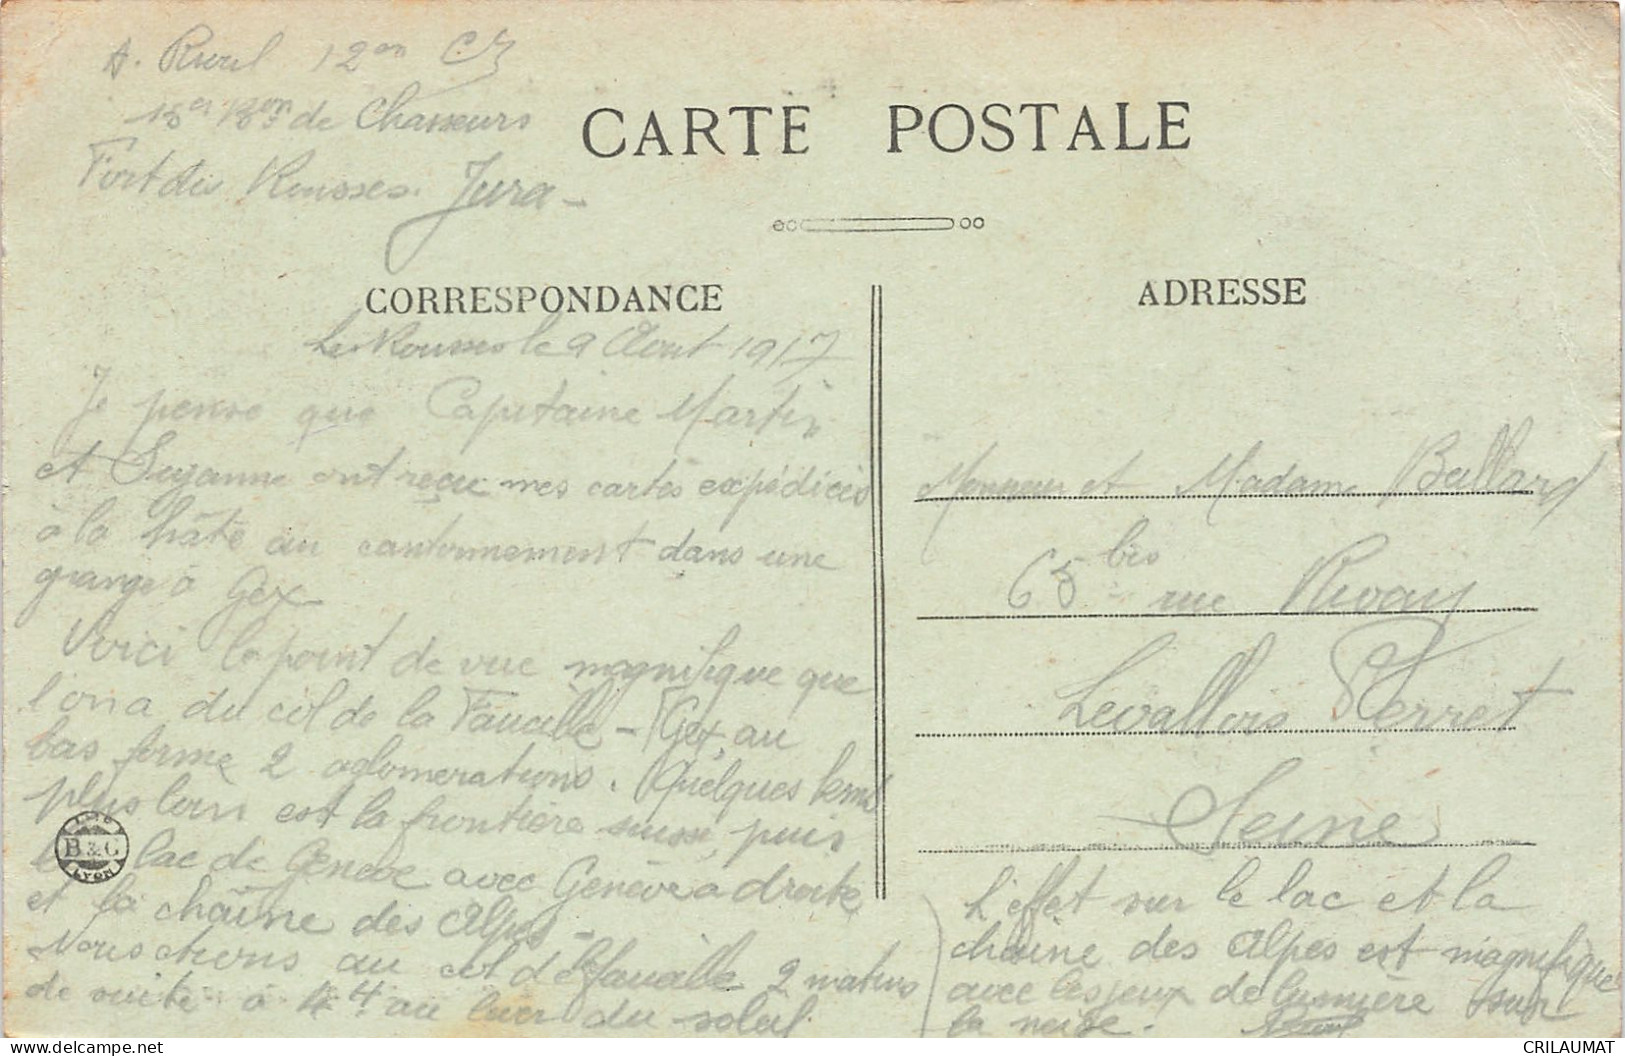 A. Ruel 12em Cie
18er Bon de Chasseurs
Fort des Rousses. Jura -
CARTE POSTALE
CORRESPONDANCE
ADRESSE
Les Rousses le 9 Aout 1917
Je pense que Capitaine Martin
et Suzanne ont reçu mes cartes expédiées
à la hâte au cantonnement dans une
grange à Gex
Voici le point de vue magnifique que
l'on a du col de la Faucille - Gex, au
bas forme 2 aglomerations. Quelques kem
plus loin est la frontière suisse, puis
le lac de Genève avec Genève a droite
et la chaîne des Alpes -
Nous étions au col de la faucille 2 matins
de suite à 4h au lever du soleil
Monsieur et Madame Ballard
65 bis rue Rivay
Levallois Perret
Seine
L'effet sur le lac et la
chaîne des Alpes est magnifique
avec les jeux de lumière sur
la neige.
B & G
LYON
CRILAUMAT